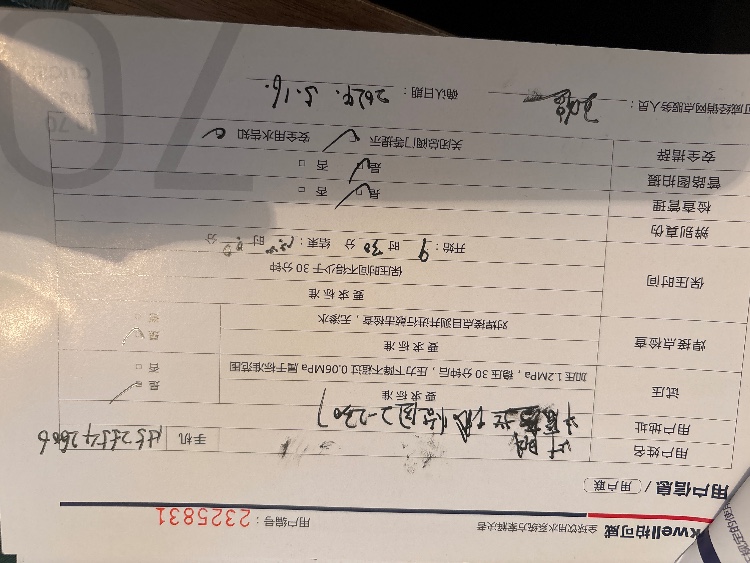 kwell柏可威 全球饮用水系统方案解决者 用户编号：2325831
用户信息 / 用户联
用户姓名 手机
用户地址
试压 要求标准 是
加压1.2MPa，稳压30分钟后，压力下降不超过0.06MPa属于标准范围 否
焊接点检查 要求标准 是
对焊接点目测并进行敲击检查，无渗水 否
保压时间 要求标准
保压时间不得少于30分钟
开始：9时30分 结束： 时 分
辨别真伪
检查管理 是 否
管路图拍摄 是 否
安全措辞 关闭总阀门等提示 安全用水告知
可威经销网点服务人员： 确认日期：2024.5.16.